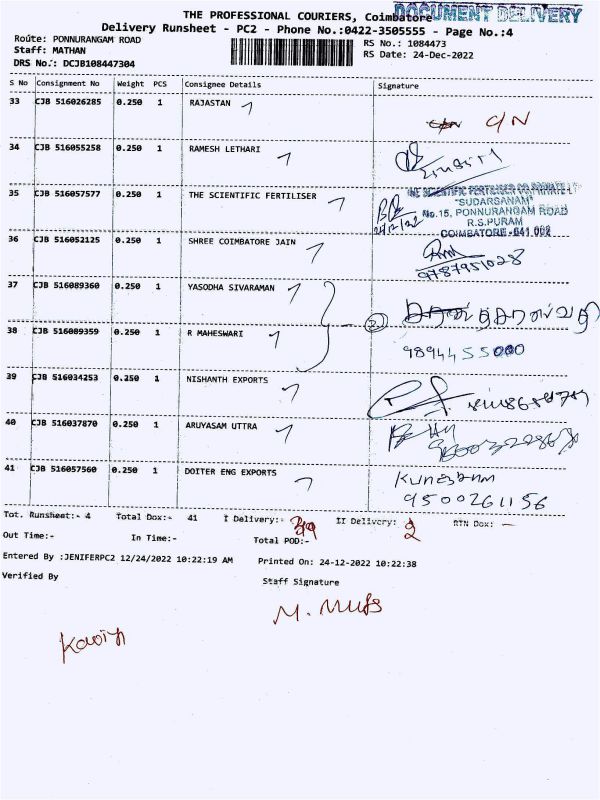 THE PROFESSIONAL COURIERS, Coimbatore
DOCUMENT DELIVERY
Delivery Runsheet - PC2 - Phone No.:0422-3505555 - Page No.:4
Route: PONNURANGAM ROAD
RS No.: 1084473
Staff: MATHAN
RS Date: 24-Dec-2022
DRS No.: DCJB108447304
S No Consignment No Weight PCS Consignee Details Signature
33 CJB 516026285 0.250 1 RAJASTAN C/N
34 CJB 516055258 0.250 1 RAMESH LETHARI
35 CJB 516057577 0.250 1 THE SCIENTIFIC FERTILISER
THE SCIENTIFIC FERTILISER CO. PRIVATE LT
"SUDARSANAM"
No.15, PONNURANGAM ROAD
R.S.PURAM
COIMBATORE - 641 002
24/12/22
36 CJB 516052125 0.250 1 SHREE COIMBATORE JAIN
9787951028
37 CJB 516089360 0.250 1 YASODHA SIVARAMAN
2
38 CJB 516089359 0.250 1 R MAHESWARI
9894455000
39 CJB 516034253 0.250 1 NISHANTH EXPORTS
40 CJB 516037870 0.250 1 ARUYASAM UTTRA
41 CJB 516057560 0.250 1 DOITER ENG EXPORTS
9500261156
Tot. Runsheet:- 4 Total Dox:- 41 I Delivery:- 39 II Delivery: 2 RTN Dox: -
Out Time:- In Time:- Total POD:-
Entered By :JENIFERPC2 12/24/2022 10:22:19 AM Printed On: 24-12-2022 10:22:38
Verified By Staff Signature